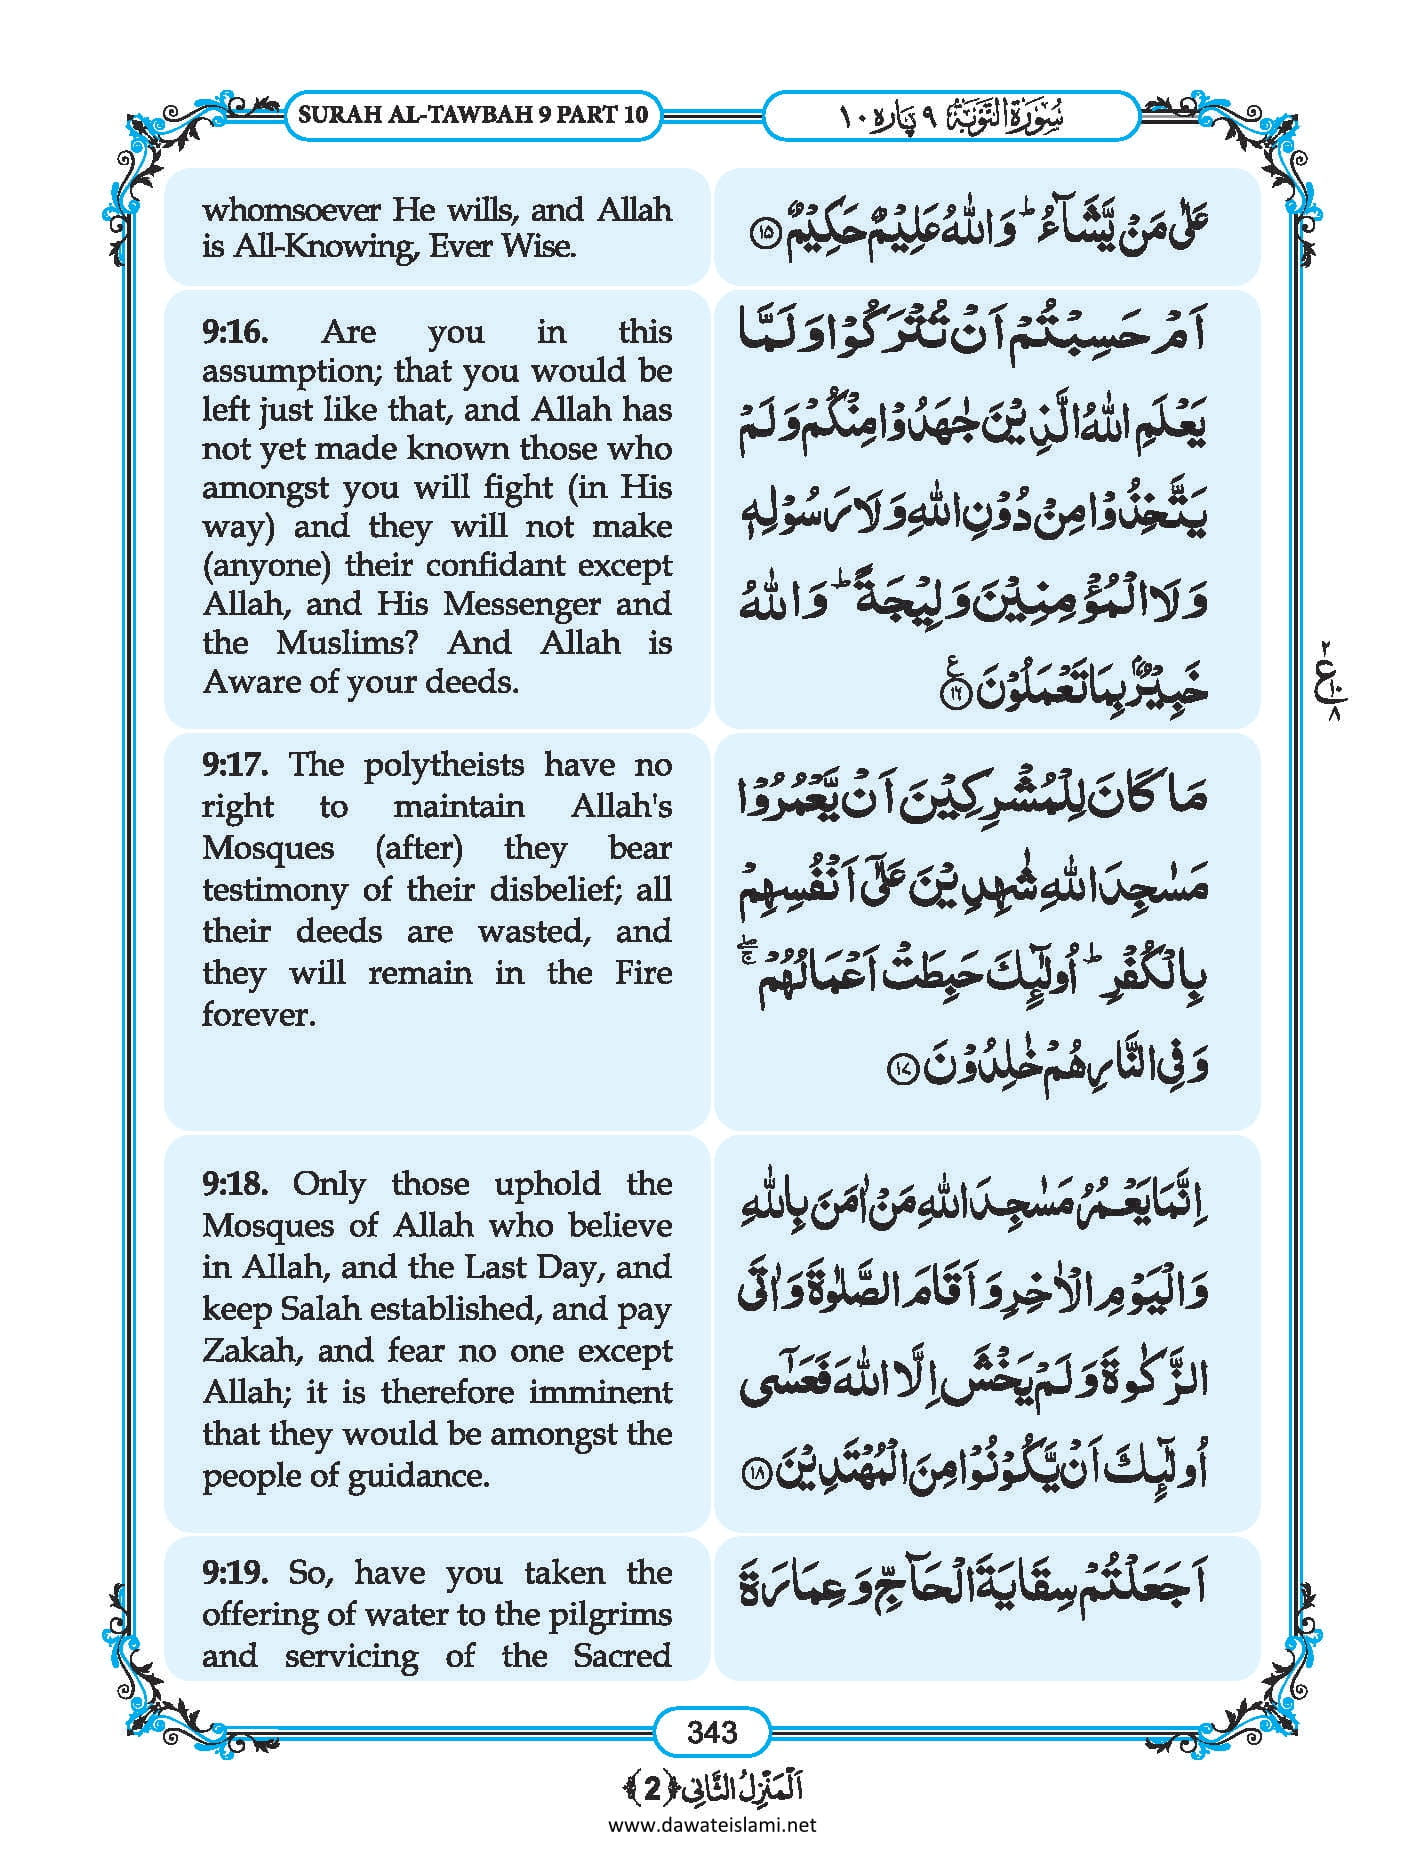 SURAH AL-TAWBAH 9 PART 10
سُوْرَةُ التَّوْبَةُ ٩ پَارَہ ١٠
whomsoever He wills, and Allah
is All-Knowing, Ever Wise.
عَلٰى مَنْ يَّشَآءُ ؕ وَاللّٰهُ عَلِيْمٌ حَكِيْمٌ ۝۱۵
9:16. Are you in this
assumption; that you would be
left just like that, and Allah has
not yet made known those who
amongst you will fight (in His
way) and they will not make
(anyone) their confidant except
Allah, and His Messenger and
the Muslims? And Allah is
Aware of your deeds.
اَمْ حَسِبْتُمْ اَنْ تُتْرَكُوْا وَلَمَّا
يَعْلَمِ اللّٰهُ الَّذِيْنَ جٰهَدُوْا مِنْكُمْ وَلَمْ
يَتَّخِذُوْا مِنْ دُوْنِ اللّٰهِ وَلَا رَسُوْلِهٖ
وَلَا الْمُؤْمِنِيْنَ وَلِيْجَةً ؕ وَاللّٰهُ
خَبِيْرٌۢ بِمَا تَعْمَلُوْنَ ۝۱۶ ع
٢
ع
١٠
٨
9:17. The polytheists have no
right to maintain Allah's
Mosques (after) they bear
testimony of their disbelief; all
their deeds are wasted, and
they will remain in the Fire
forever.
مَا كَانَ لِلْمُشْرِكِيْنَ اَنْ يَّعْمُرُوْا
مَسٰجِدَ اللّٰهِ شٰهِدِيْنَ عَلٰۤى اَنْفُسِهِمْ
بِالْكُفْرِ ؕ اُولٰٓئِكَ حَبِطَتْ اَعْمَالُهُمْ ۖۚ
وَفِى النَّارِ هُمْ خٰلِدُوْنَ ۝۱۷
9:18. Only those uphold the
Mosques of Allah who believe
in Allah, and the Last Day, and
keep Salah established, and pay
Zakah, and fear no one except
Allah; it is therefore imminent
that they would be amongst the
people of guidance.
اِنَّمَا يَعْمُرُ مَسٰجِدَ اللّٰهِ مَنْ اٰمَنَ بِاللّٰهِ
وَالْيَوْمِ الْاٰخِرِ وَاَقَامَ الصَّلٰوةَ وَاٰتَى
الزَّكٰوةَ وَلَمْ يَخْشَ اِلَّا اللّٰهَ فَعَسٰۤى
اُولٰٓئِكَ اَنْ يَّكُوْنُوْا مِنَ الْمُهْتَدِيْنَ ۝۱۸
9:19. So, have you taken the
offering of water to the pilgrims
and servicing of the Sacred
اَجَعَلْتُمْ سِقَايَةَ الْحَآجِّ وَعِمَارَةَ
343
اَلْمَنْزِلُ الثَّانِی ﴿2﴾
www.dawateislami.net